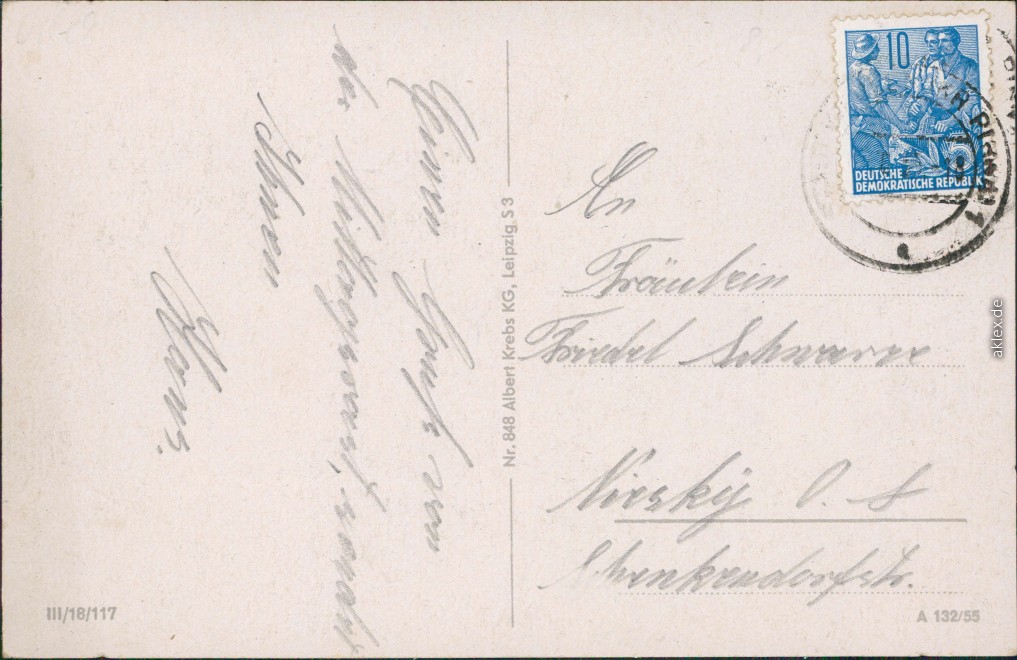 Einen Gruß von
der Müllerquast, sendet
Ihnen
Hans.
Nr. 848 Albert Krebs KG, Leipzig S 3
10
DEUTSCHE
DEMOKRATISCHE REPUBLIK
An
Fräulein
Friedel Schwarze
Niesky O. S
Schenkendorfstr.
III/18/117
A 132/55
aklex.de